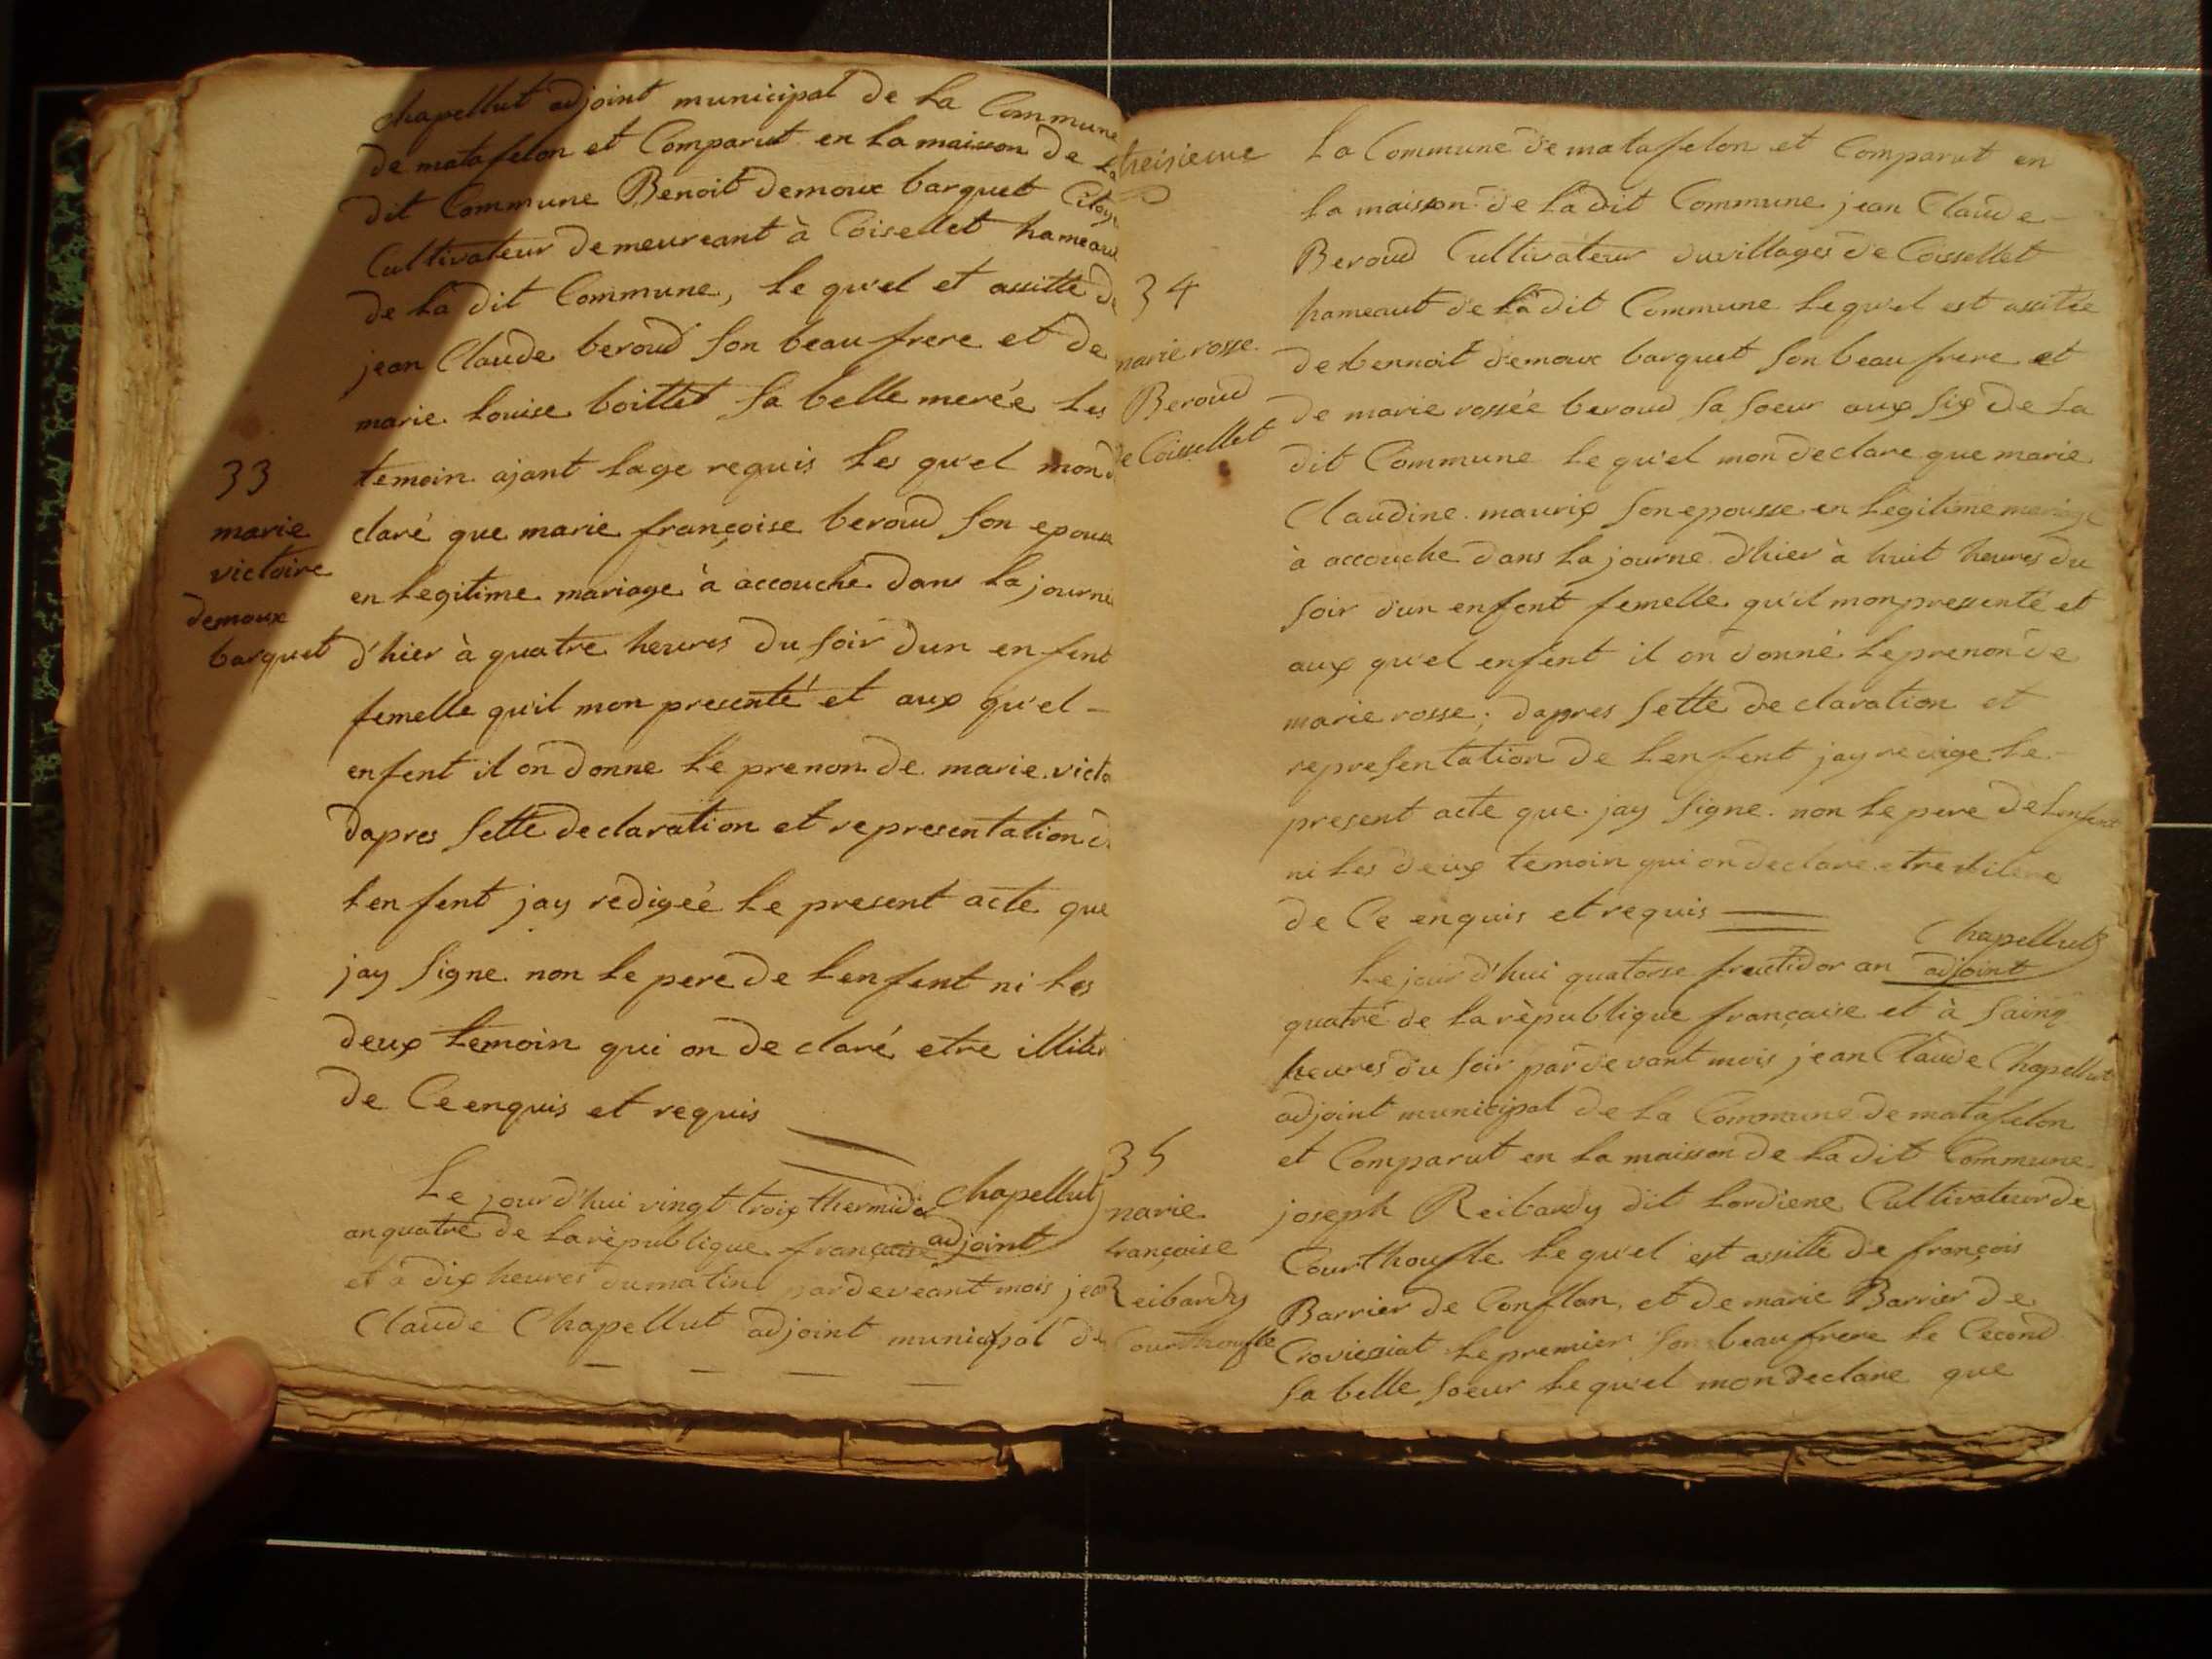 chapellut adjoint municipal de la Commune
de matafelon et Comparut en la maison de la
dit Commune Benoit demoux barquet Citoye
Cultivateur demeureant à Coiselet hameaud
de la dit Commune, le qu'el et assitte de
jean Claude beroud son beau frere et de
marie louise boittet sa belle merée les
33
temoin ajant lage requis les qu'el mon d
marie
claré que marie françoise beroud son epouse
victoire
en legitime mariage à accouché dans la journé
demoux
barquet
d'hier à quatre heures du soir dun enfent
femelle qu'il mon presenté et aux qu'el -
enfent il on donne le prenon de marie victo
dapres sette declaration et representation d
lenfent jay rédigéé le present acte que
jay signe non le pere de lenfent ni les
deux temoin qui on declaré etre illiter
de Ce enquis et requis
Chapellut
adjoint
Le jourd'hui vingt troix thermidor
an quatre de la republique françaisse
et à dix heures du matin pardeveant mois jean
Claude Chapellut adjoint municipal de
treisieme
34
marie rosse
Beroud
de Coissellet
35
marie
françoise
Reibardy
Courthoufle
la Commune de matafelon et Comparut en
la maison de la dit Commune jean Claude -
Beroud Cultivateur du villages de Coissellet
hameaut de la dit Commune le qu'el est assitée
de bennoit demoux barquet son beau frere et
de marie rossée beroud sa soeur aux six de la
dit Commune le qu'el mon declare que marie
Claudine maurix son epousse en legitime mariage
à accouche dans la journe d'hier à huit heures du
soir d'un enfent femelle qu'il mon pressenté et
aux qu'el enfent il on donné le prenon de
marie rosse; dapres sette declaration et
representation de lenfent jay redige le -
present acte que jay signe non le pere de lenfent
ni les deux temoin qui on declare etre
de Ce enquis et requis
Chapellut
adjoint
Le jour d'hui quatorse fructidor an
quatré de la république française et à sainq
heures du soir par devant mois jean Claude Chapellut
adjoint municipal de la Commune de matafelon
et Comparut en la maisson de la dit Commune
joseph Reibardy dit lordiene Cultivateur de
Courthoufle le qu'el est assitté de françois
Barrier de Conflan, et de marie Barrier de
Croviessiat le premier son beau frere le Cecond
sa belle soeur le qu'el mon declare que